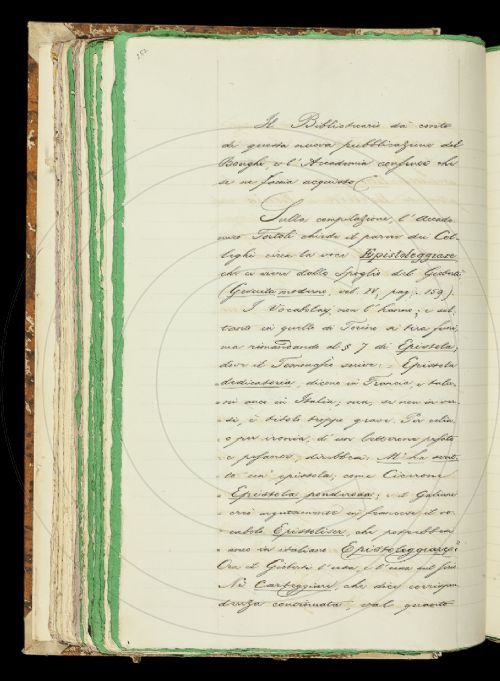 252
Il Bibliotecario dà conto
di questa nuova pubblicazione del
Bonghi, e l'Accademia conferisce che
se ne faccia acquisto.
Sulla compilazione, l'Accade-
mico Tortoli chiede il parere dei Col-
leghi circa la voce Epistoleggiare
che ci viene dallo spoglio del Gioberti
(Gesuita moderno, vol. IV, pag. 159).
I Vocabolarj non l'hanno; e sol-
tanto in quello di Torino si tira fuo-
ri rimandando al § 7 di Epistola;
dove il Tommaseo scrive: Epistola
dedicatoria, dicono in Francia, e talu-
ni anco in Italia; ma, se non in ver-
si, è titolo troppo grave. Per celia,
o per ironia, d'una letterona pesata
e, direbbesi, M'ha scrit-
to un'epistola; come Cicerone
Epistola ponderosa; e il Galiani
creò argutamente in francese il vo-
cabolo Epistoliser, che potrebbesi
anco in italiano Epistoleggiare.
Ora il Gioberti l'usa, e l'usa sul serio.
Nè Carteggiare, che dice corrispon-
denza continuata, vale quanto